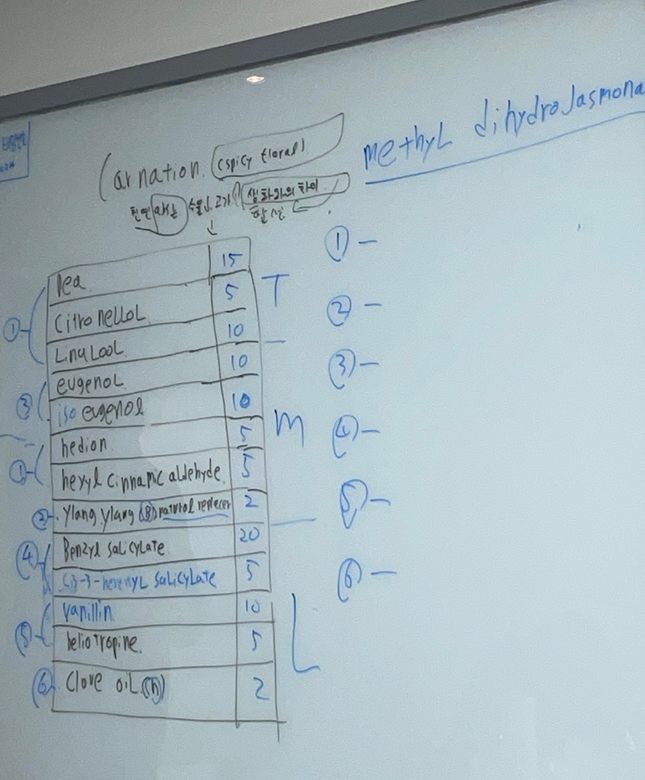 Carnation. (spicy floral)
methyl dihydroJasmona
생화와의 차이
pea 15
Citronellol 5 T
Linalool 10
① eugenol 10
③ iso eugenol 10 M
hedion 5
① hexyl cinnamic aldehyde. 5
② Ylang ylang (8) natural 2
④ Benzyl salicylate 20
Cis-3-hexenyl salicylate 5
Vanillin 10
⑤ heliotropine. 5 L
⑥ Clove oil (n) 2
① -
② -
③ -
④ -
⑤ -
⑥ -